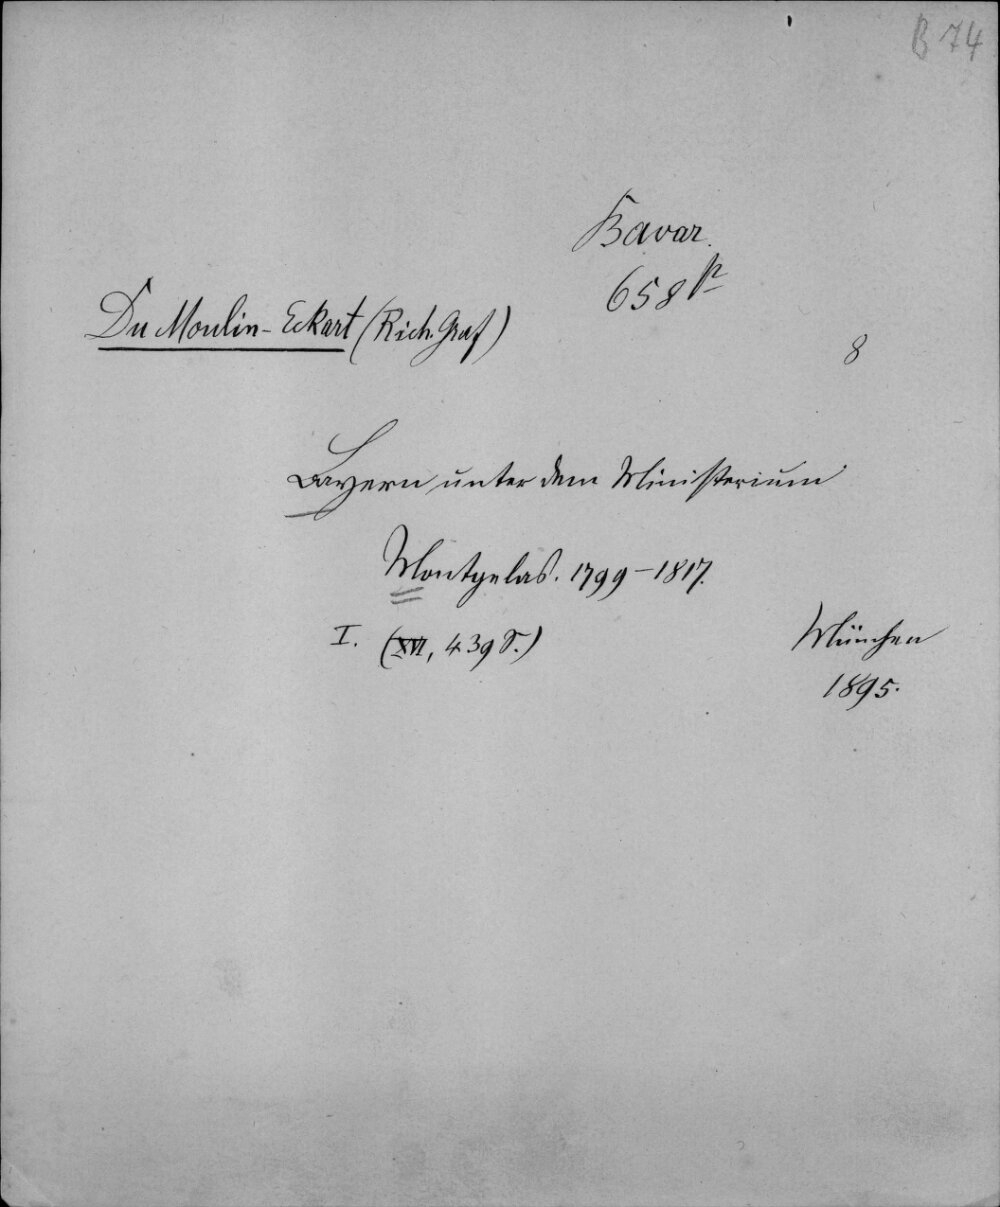 B 74
Bavar.
658 p
Du Moulin-Eckart (Rich. Graf)
8
Bayern unter dem Ministerium
Montgelas. 1799–1817.
I. (XVI, 439 S.)
München
1895.